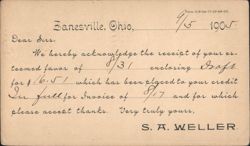 Zanesville, Ohio, 9/5 1905
Dear Sirs:
We hereby acknowledge the receipt of your es-
teemed favor of 8/31 enclosing Draft
for $16.51 which has been placed to your credit
In full for Invoice of 8/17 and for which
please accept thanks. Very truly yours,
S. A. WELLER